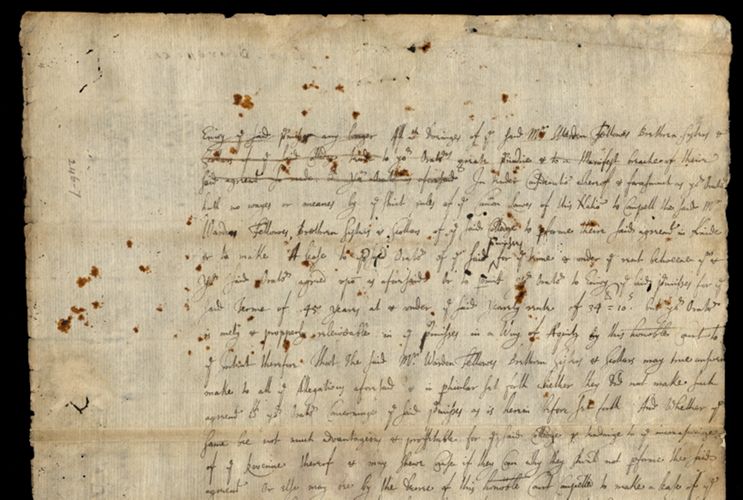 Enioy ye said pmisses any longer All wch doeinges of ye said Mr Warden Fellowes Brethren Sisters &
Scollers of ye said Colledge tend to yor Orators greate preiudice & to a Manifest breache of theire
said agreemt
In tender Consideracon whereof & forasmuch as yor Orator
hath no wayes or meanes by ye strict rules of ye comon lawes of this Nation to Compell the said Mr
Warden Fellowes Brethren Sisters & Scollers of ye said Colledge to pforme theire said agreemt in kinde
or to make A lease to yor Orator of ye said pmisses for ye time & under ye rent betweene ym &
yor said Orator agreed upon as aforesaid or to pmitt yor Orator to Enioy ye said pmisses for ye
said Terme of 45 yeares at & under ye said yearly rente of 34li = 10s. but yor Orator
is only & properly releiveable in ye pmisses in a Way of Equity by this honoble court to
ye intent therefore That the said Mr Warden Fellowes Brethren Sisters & Scollers may true answere
make to all ye Allegations aforesaid & in pticular set forth whether they did not make such
agreemt wth yor Orator Concerninge ye said pmisses as is herein before set forth And Whether ye
same be not much advantageous & profitable for ye said Colledge & tendinge to ye increasinge
of ye Revenue thereof & may shew cause if they can why they should not pforme the said
agreemt Or else may bee by the decree of this honoble court compelled to make a lease of ye
246-7